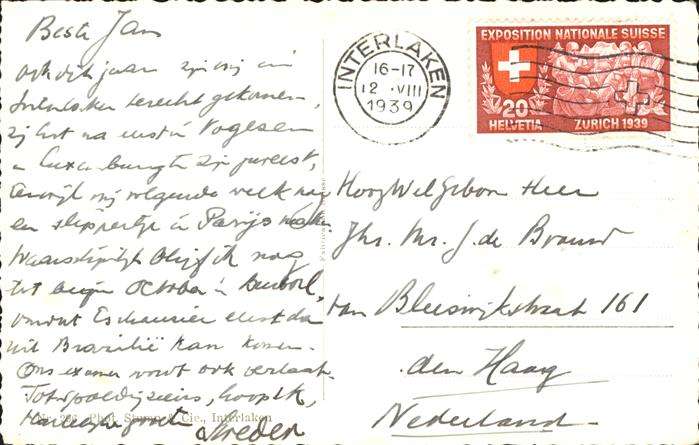 Beste Jan
ook dit jaar zijn wij in
Interlaken terecht gekomen,
zij het na eerst in Vogesen
en Luxemburg te zijn geweest,
terwijl wij volgende week nog
een slippertje in Parijs maken.
Waarschijnlijk blijf ik nog
tot begin October in
omdat Eschauzier eerst dan
uit Brazilië kan komen.
Ons examen wordt ook verlaat.
Tot spoedig ziens, hoop ik,
Hartelijke groeten
Phot. Stump & Cie., Interlaken
INTERLAKEN
16-17
12 .VIII
1939
EXPOSITION NATIONALE SUISSE
20
HELVETIA ZURICH 1939
HoogWelGeboren Heer
Jhr. Mr. J. de Brauw
van Bleiswijkstraat 161
den Haag
Nederland